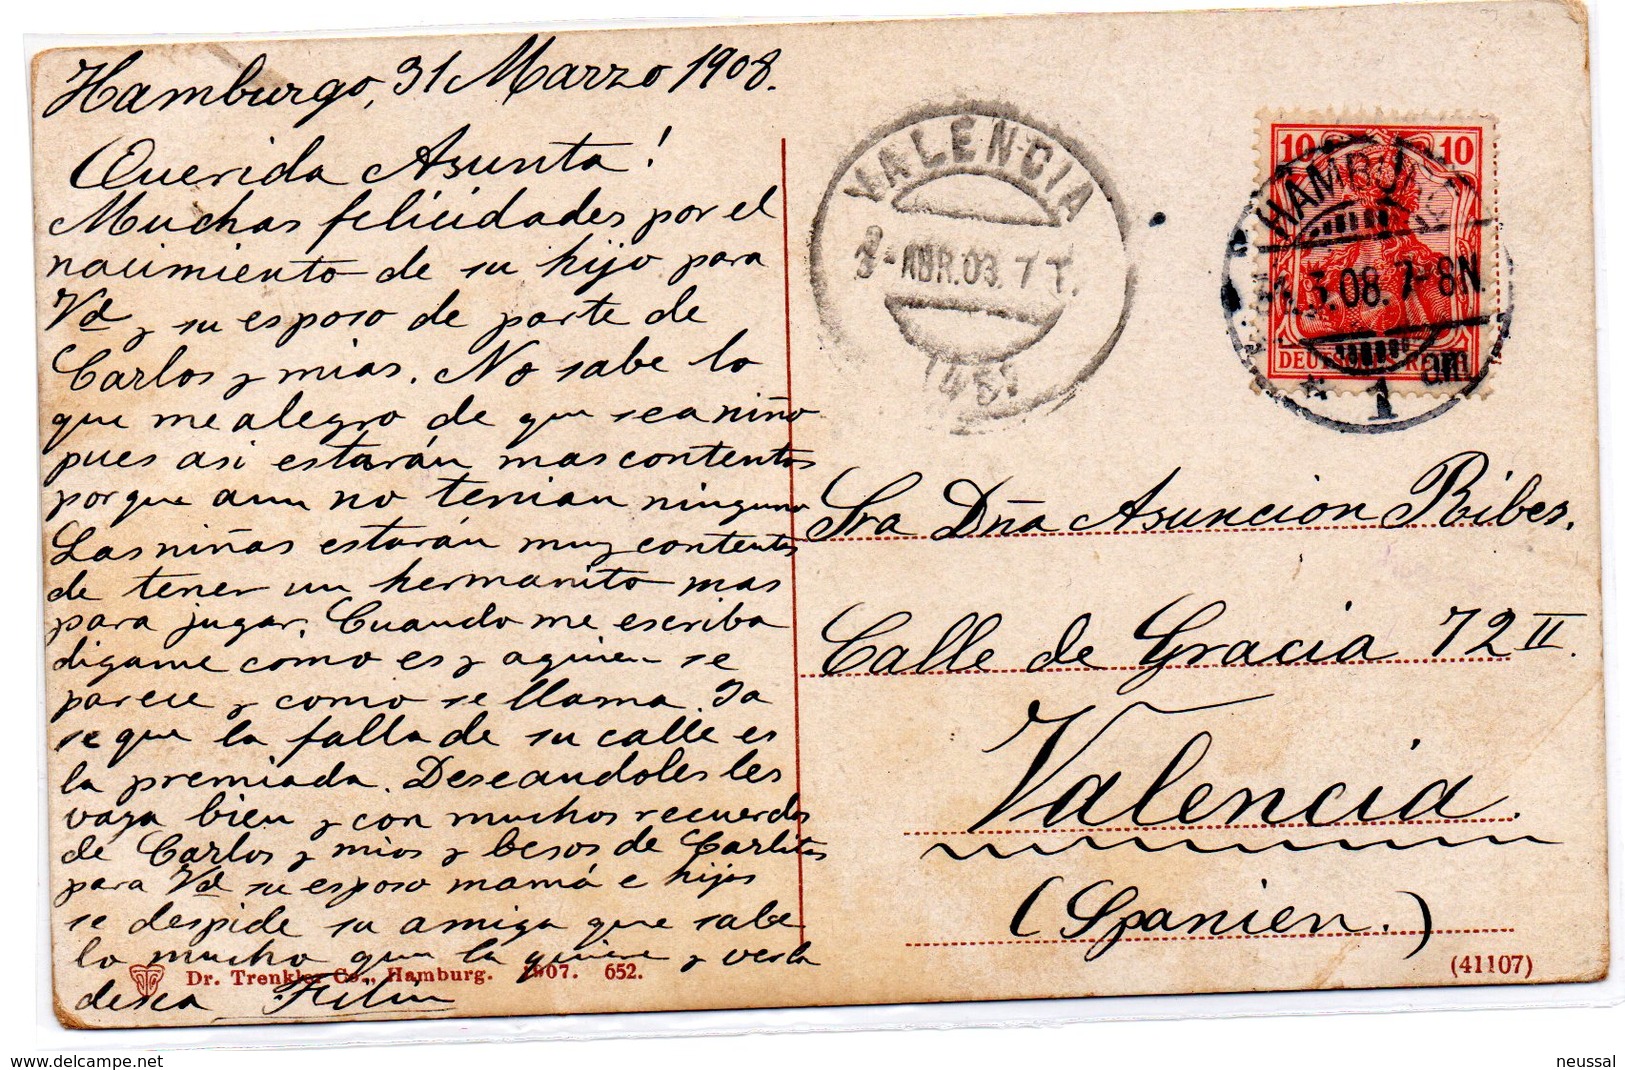 Hamburgo, 31 Marzo 1908.
Querida Asunta!
Muchas felicidades por el
nacimiento de su hijo para
Vd y su esposo de parte de
Carlos y mias. No sabe lo
que me alegro de que sea niño
pues asi estarán mas contentos
porque aun no tenian ninguno
Las niñas estarán muy contentas
de tener un hermanito mas
para jugar. Cuando me escriba
digame como es y a quien se
parece y como se llama. Ya
se que la falla de su calle es
la premiada. Deseandoles les
vaya bien y con muchos recuerdos
de Carlos y mios y besos de Carlitos
para Vd su esposo mamá e hijos
se despide su amiga que sabe
lo mucho que la quiere y verla
desea
Dr. Trenkler Co., Hamburg. 1907. 652.
VALENCIA
3-ABR.08.7T.
10 10
HAMBURG
31.3.08.7-8N.
DEUTSCHES REICH
* 1
Sra Dña Asuncion Ribes.
Calle de Gracia 72 II.
Valencia.
(Spanien.)
(41107)
delcampe.net
neussal